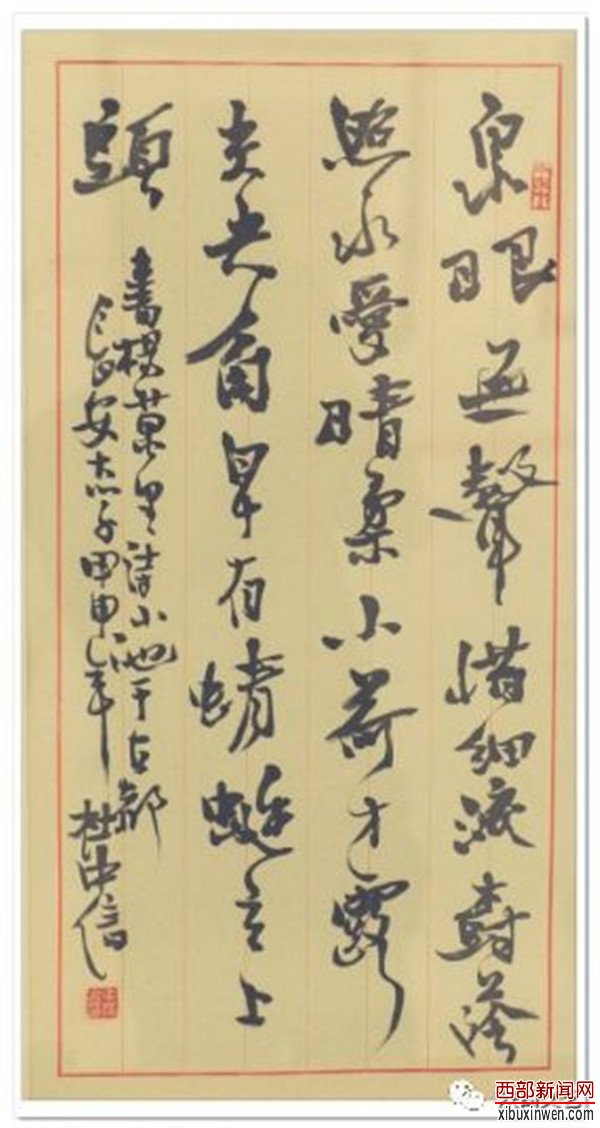 泉眼無聲惜細流樹蔭
照水愛晴柔小荷才露
尖尖角早有蜻蜓立上
頭
書楊萬里詩小池于古都
長安甲申年
杜中信
西部新闻网
xibuxinwen.com